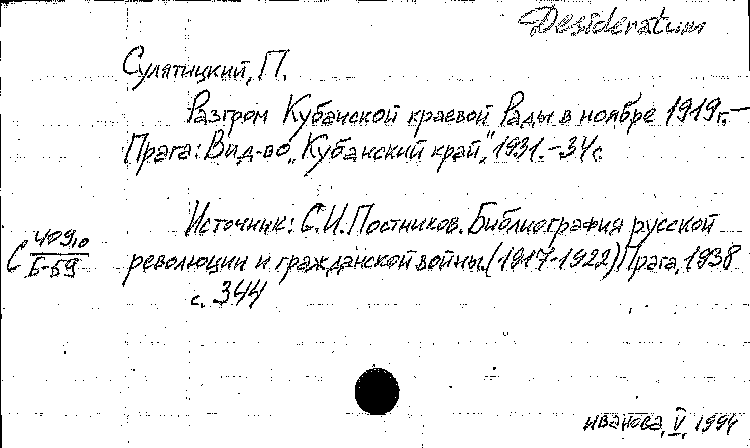 Desideratum
Сулятицкий, П.
Разгром Кубанской краевой Рады в ноябре 1919г.—
Прага: Вид-во „Кубанский край", 1931.-34с.
Источник: С.И. Постников. Библиография русской
С 409,0
Б-59
революции и гражданской войны. (1917-1922) Прага, 1938
с. 344
Иванова, V, 1994